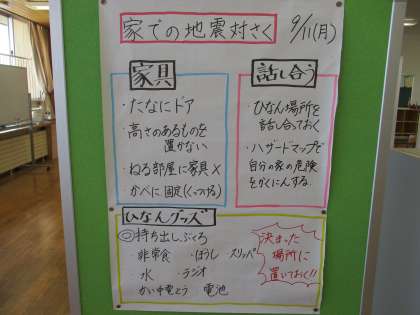 家での地震対さく
9/11(月)
家具
・たなにドア
・高さのあるものを
置かない
・ねる部屋に家具×
・かべに固定(くっつける)
話し合う
・ひなん場所を
話し合っておく
・ハザードマップで
自分の家の危険
をかくにんする。
ひなんグッズ
◎持ち出しぶくろ
・非常食 ・ぼうし ・スリッパ
・水 ・ラジオ
・かい中電とう ・電池
決まった
場所に
置いておく!!